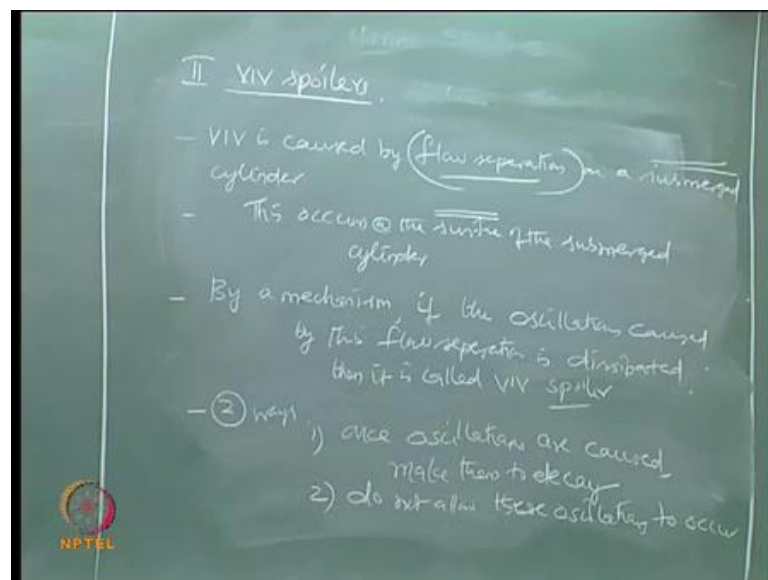 II VIV spoilers.
- VIV is caused by (flow seperation) on a submerged
cylinder
- This occurs @ the surface of the submerged
cylinder
- By a mechanism, if the oscillations caused
by this flow seperation is dissipated
then it is called VIV spoiler
- ② ways
1) once oscillations are caused,
make them to decay
2) do not allow these oscillations to occur
NPTEL